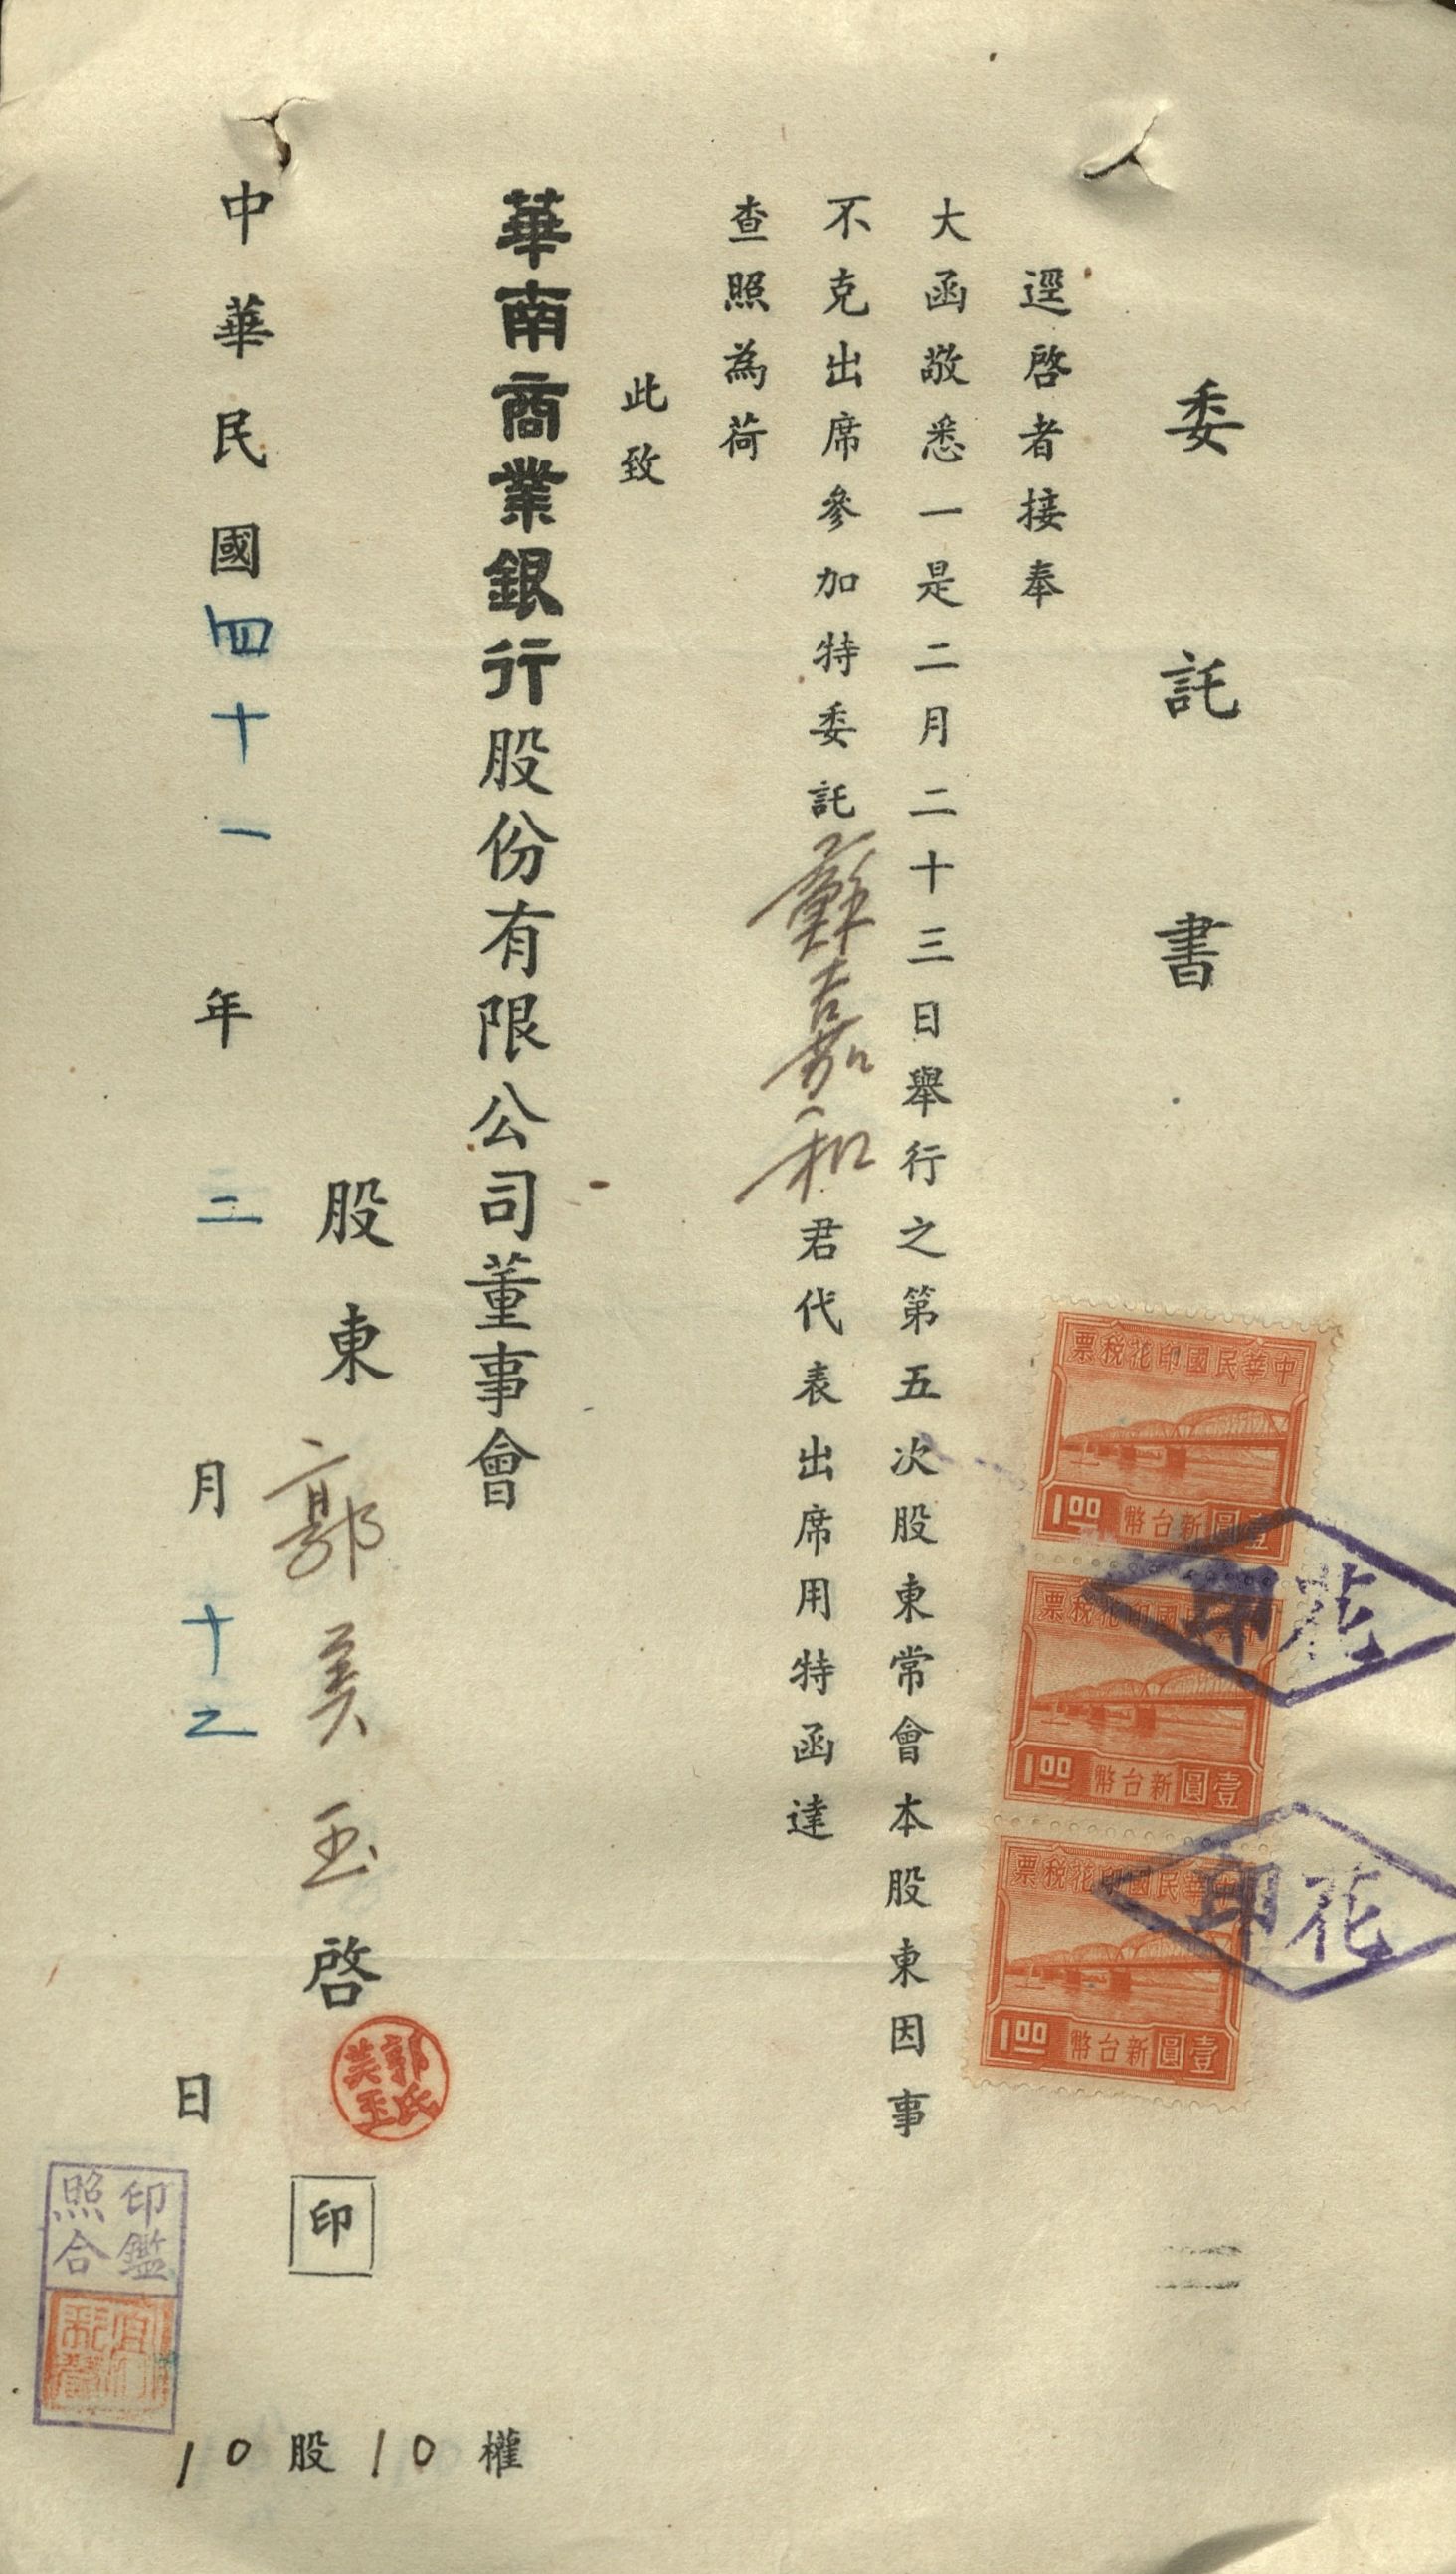 委託書
逕啓者接奉
大函敬悉一是二月二十三日舉行之第五次股東常會本股東因事
不克出席參加特委託蘇嘉和君代表出席用特函達
查照為荷
此致
華南商業銀行股份有限公司董事會
股東郭美玉啓
郭氏美玉
印
中華民國四十一年二月十二日
10股10權
印鑑照合
中華民國印花稅票
壹圓新台幣
1.00
中華民國印花稅票
壹圓新台幣
1.00
中華民國印花稅票
壹圓新台幣
1.00
花印
花印